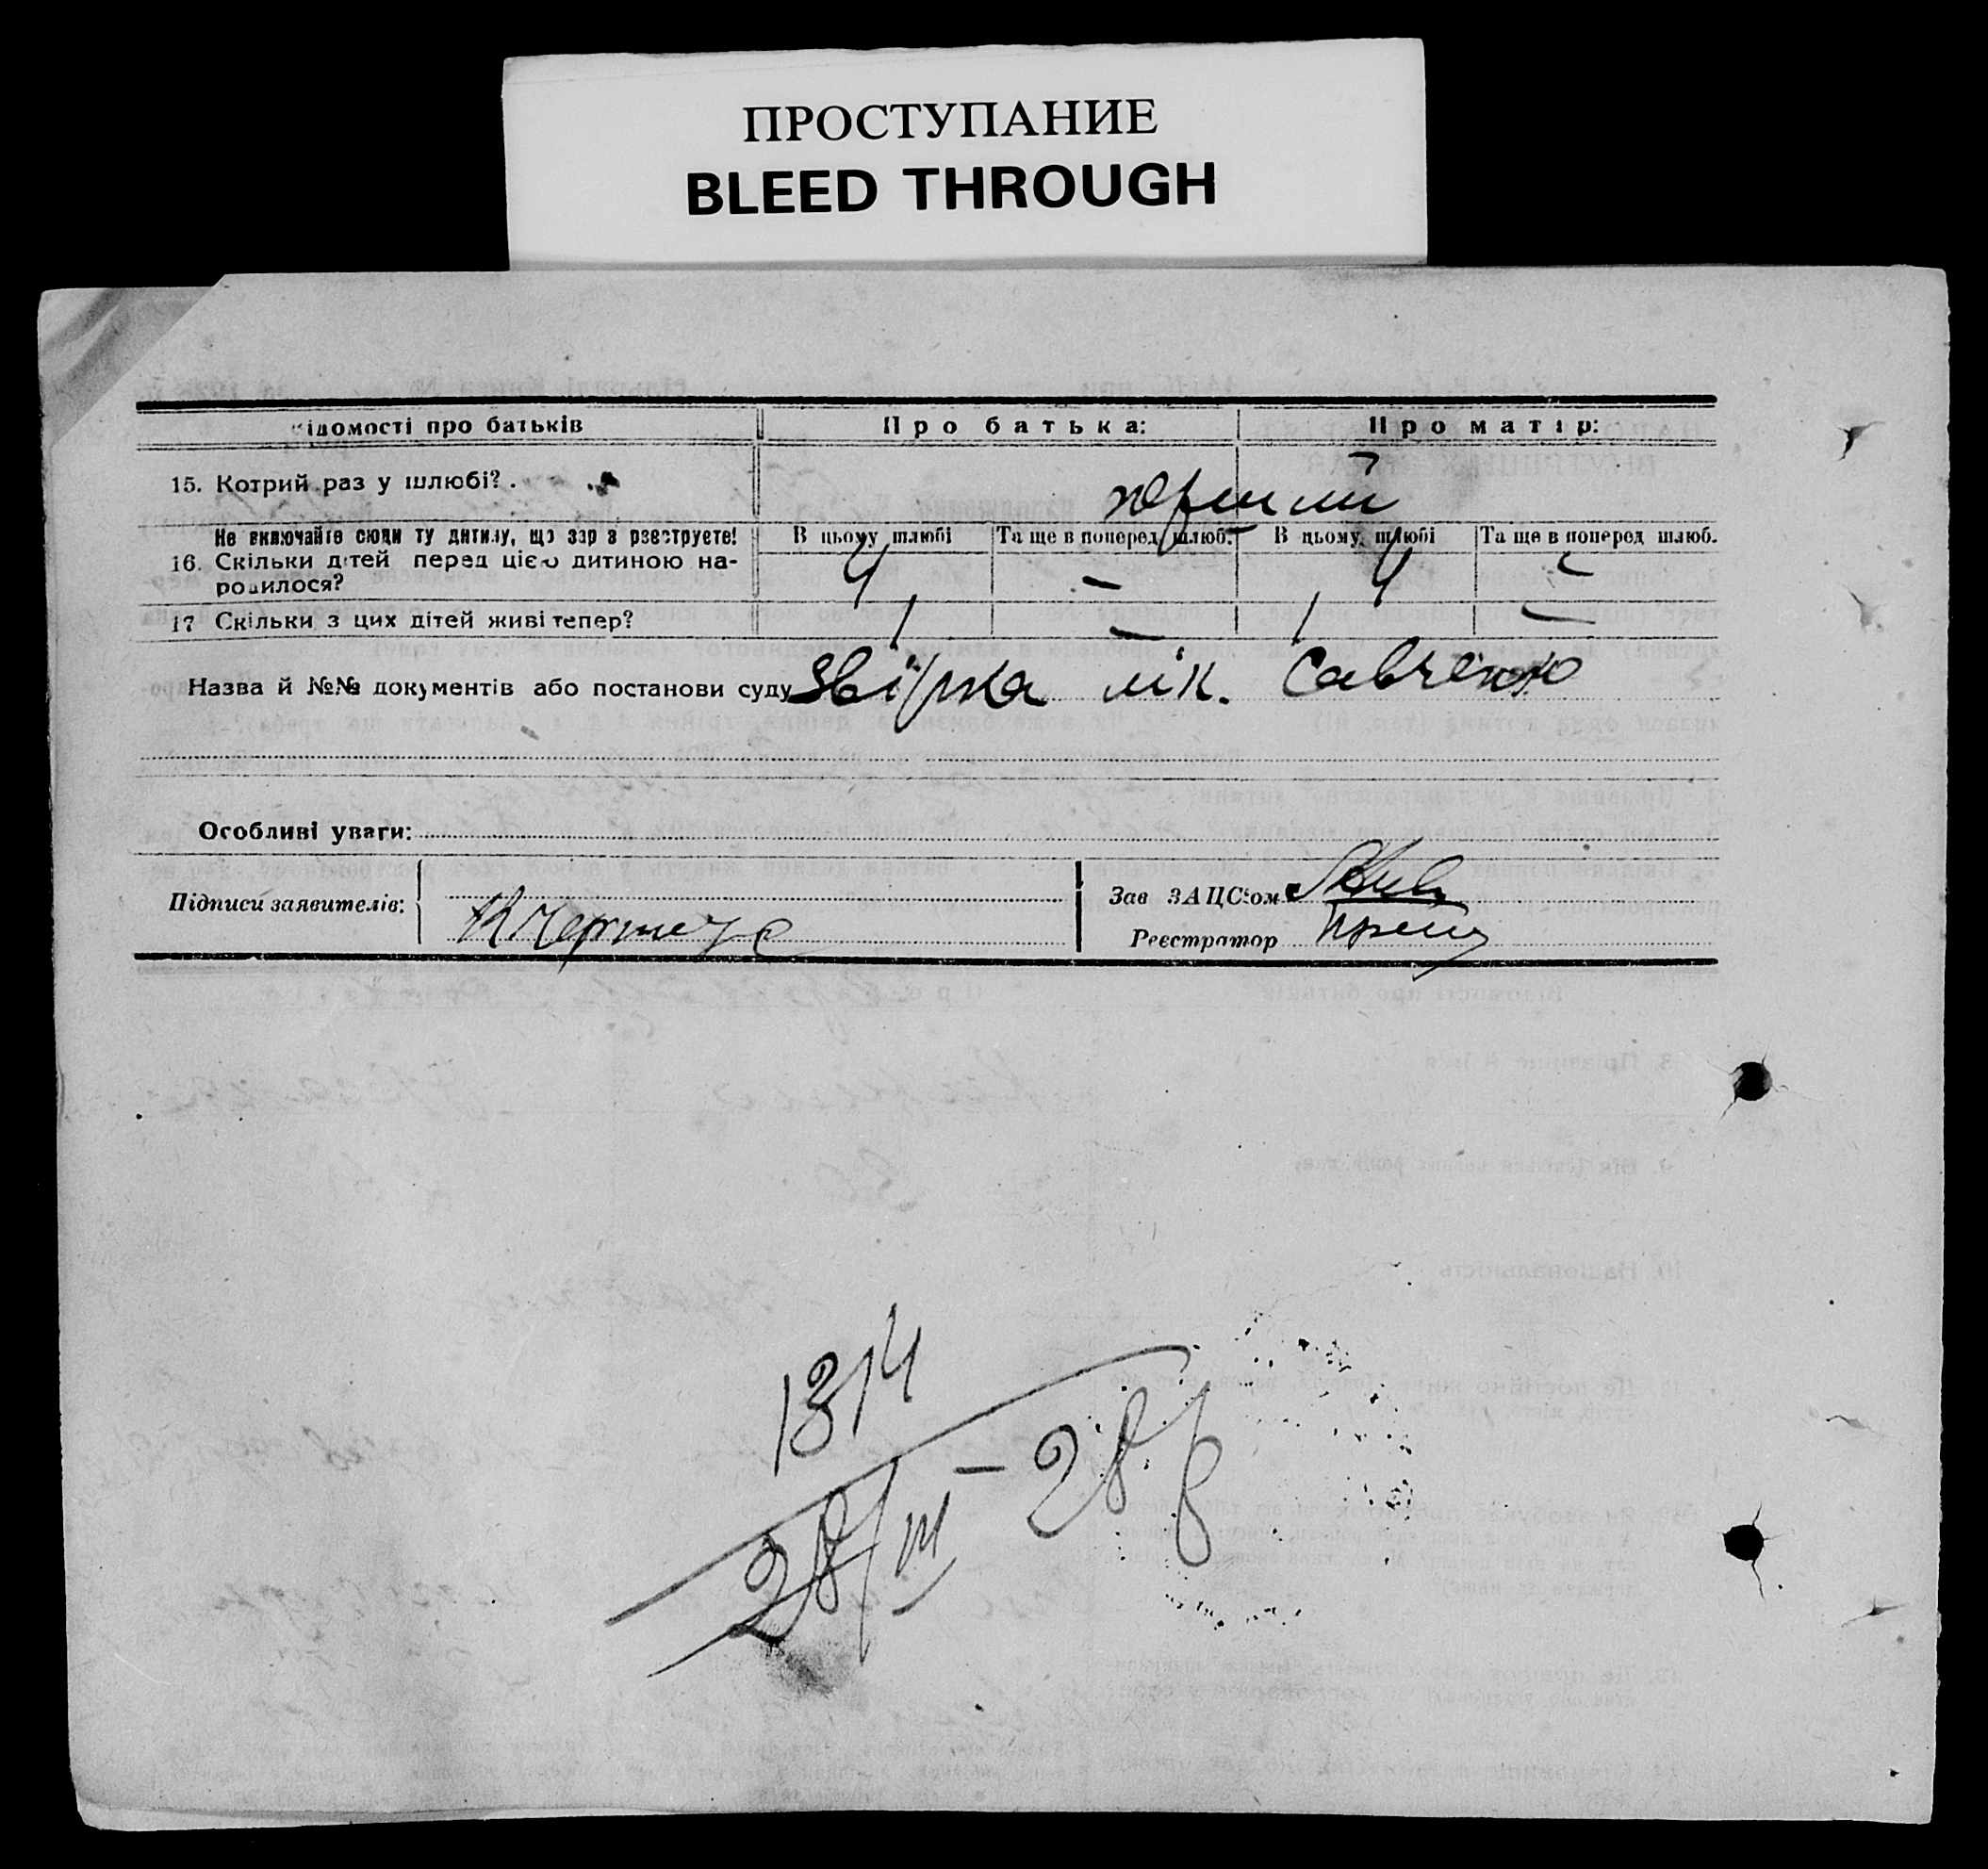 ПРОСТУПАНИЕ
BLEED THROUGH
ідомості про батьків Про батька: Про матір:
15. Котрий раз у шлюбі? . перший
Не включайте сюди ту дитину, що зар з рєєструєте! В цьому шлюбі Та ще в поперед. шлюб. В цьому шлюбі Та ще в поперед шлюб.
16. Скільки дітей перед цією дитиною на-
родилося? 4 – 4 –
17 Скільки з цих дітей живі тепер? 1 – 1 –
Назва й №№ документів або постанови суду лік. Савченко
Особливі уваги:
Підписи заявителів:
Зав ЗАЦС'ом
Реєстратор
1314
28/III – 28 р